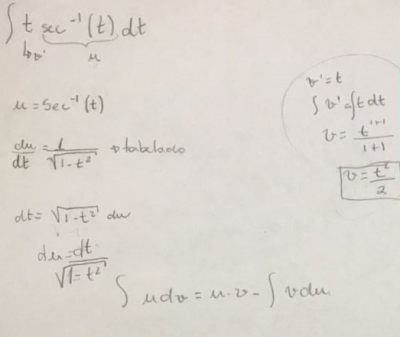 ∫ t sec⁻¹(t) dt
↳v' u
u = Sec⁻¹(t)
du/dt = 1/√(1-t²) → tabelado
dt = √(1-t²) du
du = dt/√(1-t²)
∫ u dv = u·v - ∫ v du
v' = t
∫ v' = ∫ t dt
v = t¹⁺¹/1+1
v = t²/2